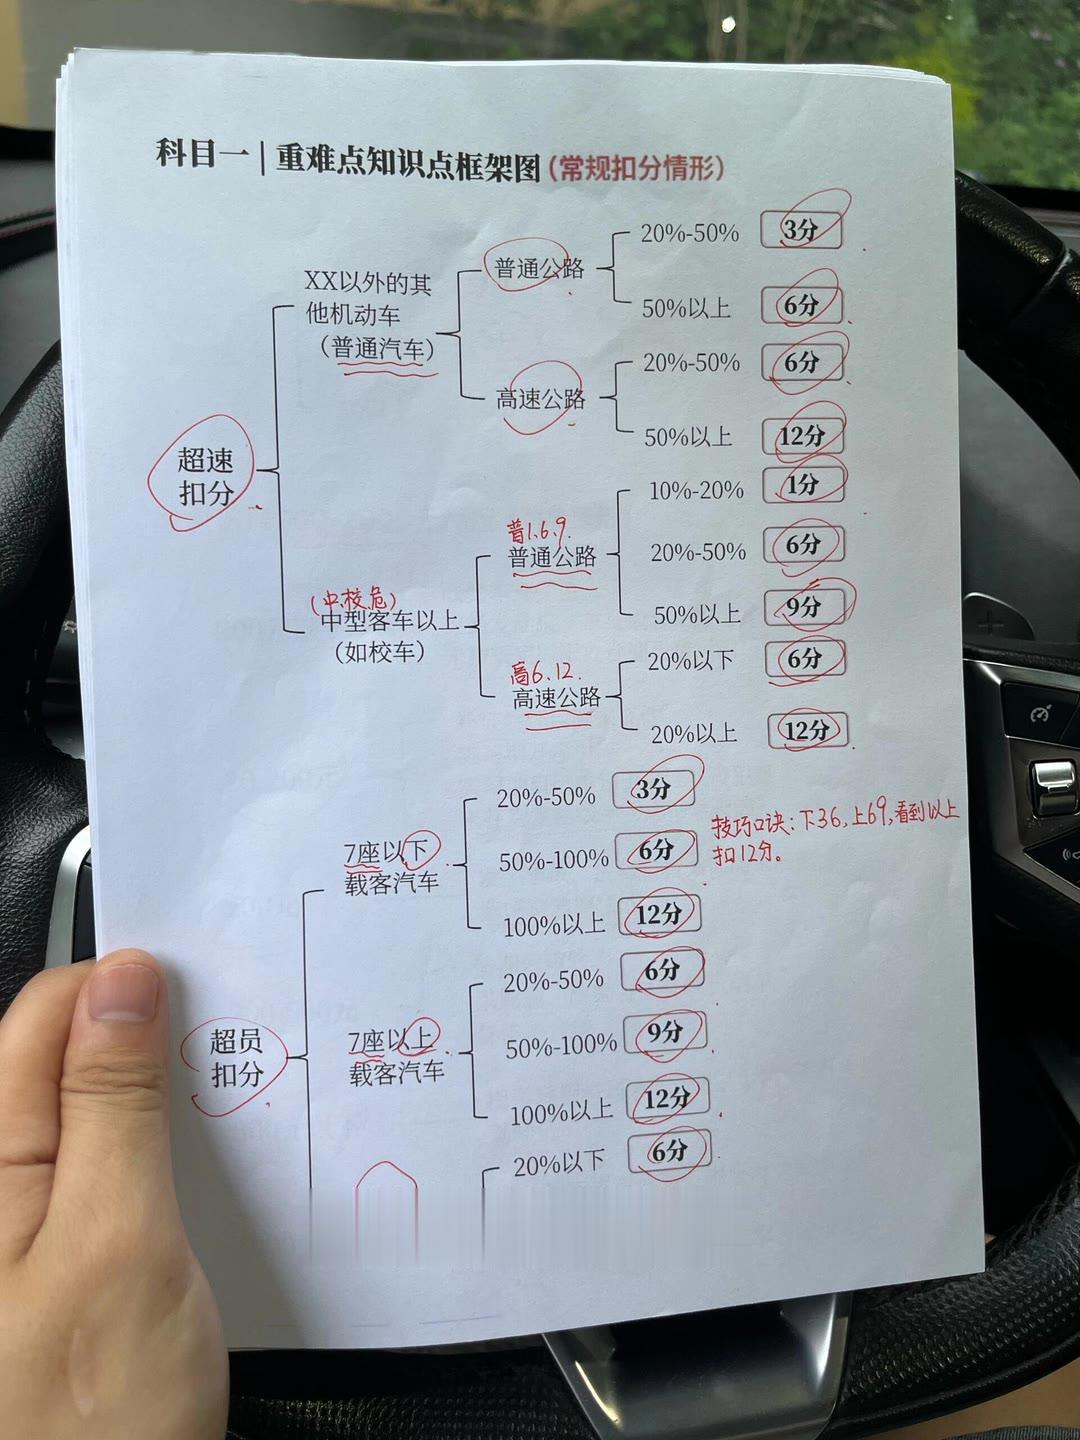 科目一｜重难点知识点框架图(常规扣分情形)
超速
扣分
XX以外的其
他机动车
（普通汽车）
普通公路
20%-50% 3分
50%以上 6分
高速公路
20%-50% 6分
50%以上 12分
(中.校.危)
中型客车以上
（如校车）
普1.6.9.
普通公路
10%-20% 1分
20%-50% 6分
50%以上 9分
高6.12.
高速公路
20%以下 6分
20%以上 12分
超员
扣分
7座以下
载客汽车
20%-50% 3分
50%-100% 6分
100%以上 12分
技巧口诀：下36,上69,看到以上
扣12分。
7座以上
载客汽车
20%-50% 6分
50%-100% 9分
100%以上 12分
20%以下 6分